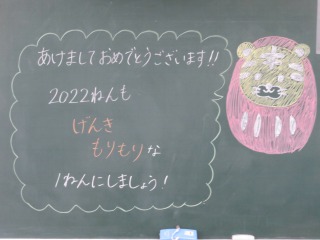 あけましておめでとうございます!!
2022ねんも
げんき
もりもりな
1ねんにしましょう!